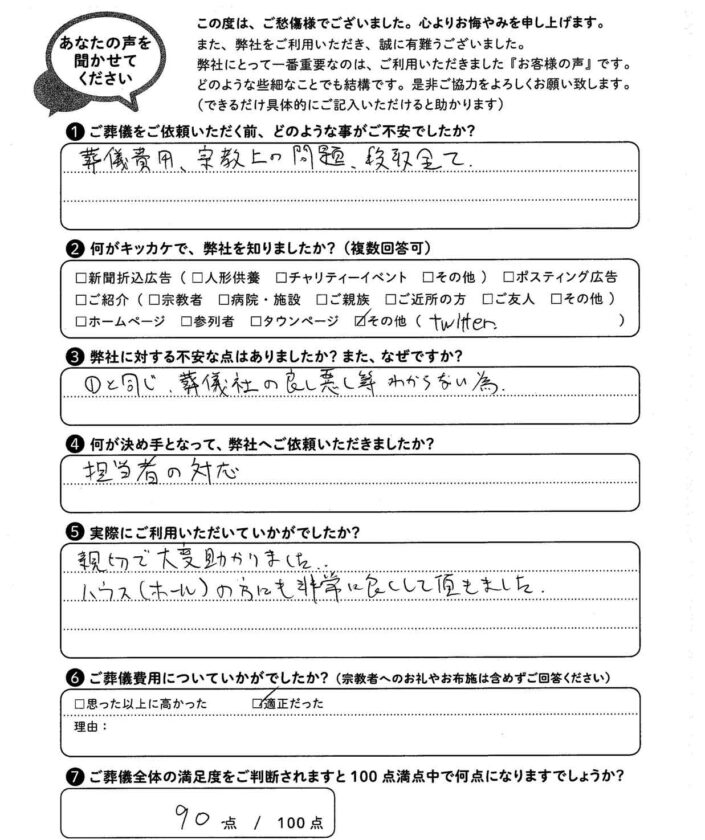 あなたの声を
聞かせて
ください
この度は、ご愁傷様でございました。心よりお悔やみを申し上げます。
また、弊社をご利用いただき、誠に有難うございました。
弊社にとって一番重要なのは、ご利用いただきました『お客様の声』です。
どのような些細なことでも結構です。是非ご協力をよろしくお願い致します。
（できるだけ具体的にご記入いただけると助かります）
❶ ご葬儀をご依頼いただく前、どのような事がご不安でしたか？
葬儀費用、宗教上の問題、段取全て.
❷ 何がキッカケで、弊社を知りましたか？（複数回答可）
□新聞折込広告（□人形供養 □チャリティーイベント □その他） □ポスティング広告
□ご紹介（□宗教者 □病院・施設 □ご親族 □ご近所の方 □ご友人 □その他）
□ホームページ □参列者 □タウンページ ☑その他（twitter. ）
❸ 弊社に対する不安な点はありましたか？また、なぜですか？
①と同じ、葬儀社の良し悪し等わからない為.
❹ 何が決め手となって、弊社へご依頼いただきましたか？
担当者の対応
❺ 実際にご利用いただいていかがでしたか？
親切で大変助かりました..
ハウス(ホール)の方にも非常に良くして頂きました.
❻ ご葬儀費用についていかがでしたか？（宗教者へのお礼やお布施は含めずご回答ください）
□思った以上に高かった ☑適正だった
理由：
❼ ご葬儀全体の満足度をご判断されますと100点満点中で何点になりますでしょうか？
90 点 / 100点